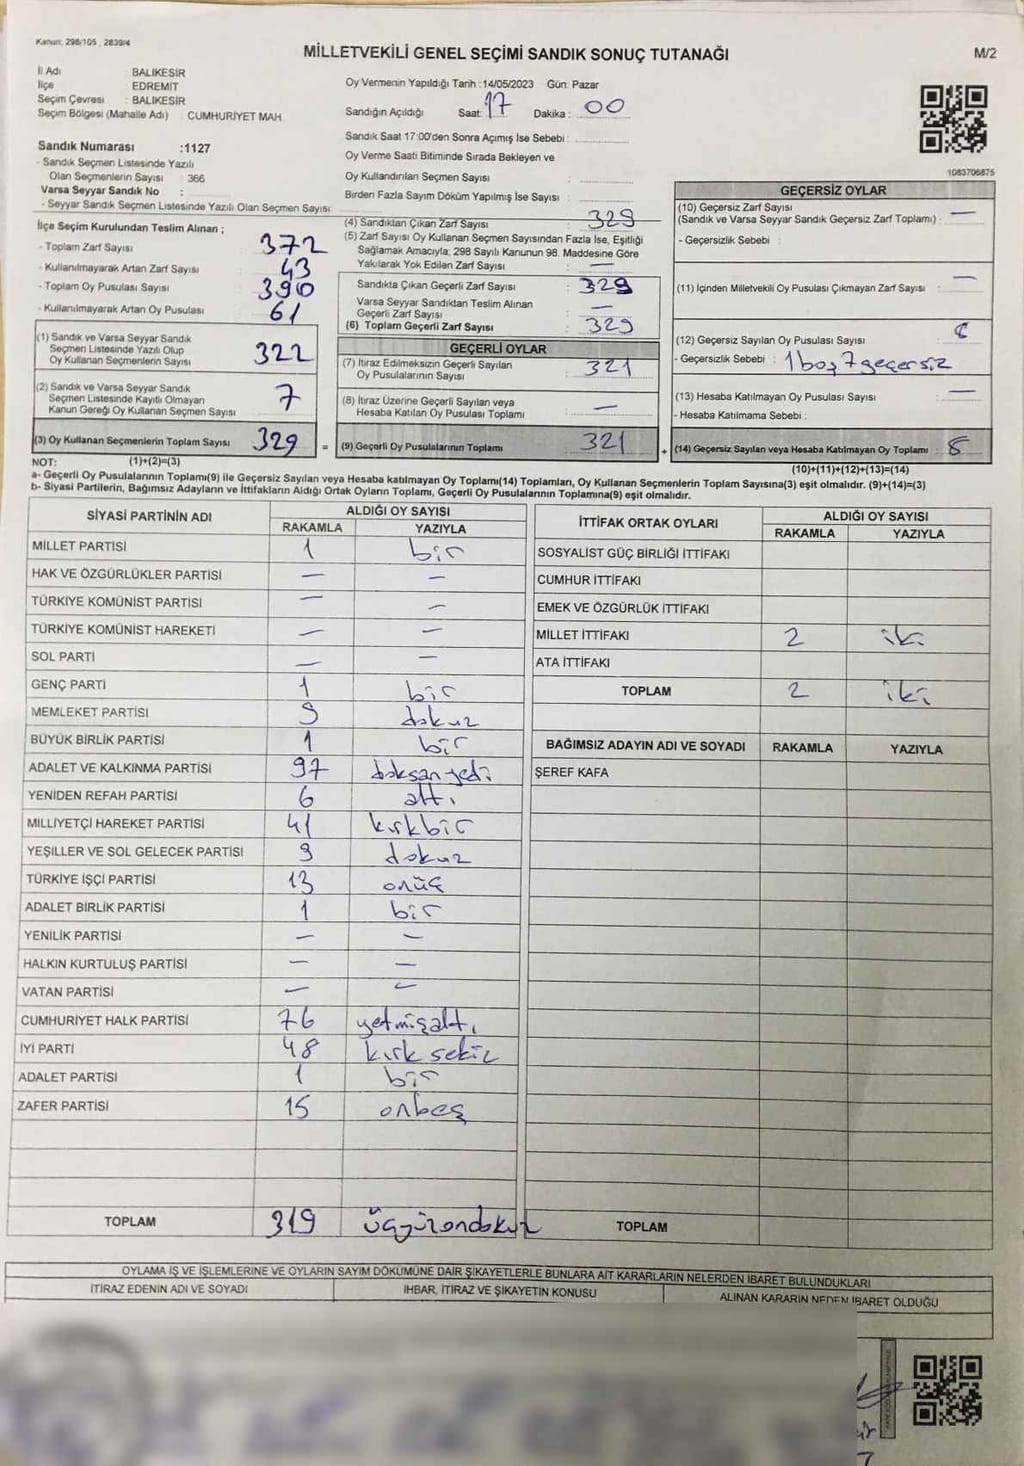 Kanun: 298/105 , 2839/4
MİLLETVEKİLİ GENEL SEÇİMİ SANDIK SONUÇ TUTANAĞI
M/2
İl Adı : BALIKESİR
İlçe : EDREMİT
Seçim Çevresi : BALIKESİR
Seçim Bölgesi (Mahalle Adı) : CUMHURİYET MAH.
Oy Vermenin Yapıldığı Tarih :14/05/2023 Gün: Pazar
Sandığın Açıldığı Saat: 17 Dakika : 00
Sandık Saat 17:00'den Sonra Açımış İse Sebebi :
Oy Verme Saati Bitiminde Sırada Bekleyen ve
Oy Kullandırılan Seçmen Sayısı :
Birden Fazla Sayım Döküm Yapılmış İse Sayısı :
1083706875
Sandık Numarası :1127
- Sandık Seçmen Listesinde Yazılı
Olan Seçmenlerin Sayısı : 366
Varsa Seyyar Sandık No :
- Seyyar Sandık Seçmen Listesinde Yazılı Olan Seçmen Sayısı:
İlçe Seçim Kurulundan Teslim Alınan ;
- Toplam Zarf Sayısı 372
- Kullanılmayarak Artan Zarf Sayısı 43
- Toplam Oy Pusulası Sayısı 390
- Kullanılmayarak Artan Oy Pusulası 61
(1) Sandık ve Varsa Seyyar Sandık
Seçmen Listesinde Yazılı Olup
Oy Kullanan Seçmenlerin Sayısı 322
(2) Sandık ve Varsa Seyyar Sandık
Seçmen Listesinde Kayıtlı Olmayan
Kanun Gereği Oy Kullanan Seçmen Sayısı 7
(3) Oy Kullanan Seçmenlerin Toplam Sayısı 329 =
(4) Sandıktan Çıkan Zarf Sayısı : 329
(5) Zarf Sayısı Oy Kullanan Seçmen Sayısından Fazla İse, Eşitliği
Sağlamak Amacıyla, 298 Sayılı Kanunun 98. Maddesine Göre
Yakılarak Yok Edilen Zarf Sayısı : —
Sandıkta Çıkan Geçerli Zarf Sayısı : 329
Varsa Seyyar Sandıktan Teslim Alınan
Geçerli Zarf Sayısı : —
(6) Toplam Geçerli Zarf Sayısı : 329
GEÇERLİ OYLAR
(7) İtiraz Edilmeksizin Geçerli Sayılan
Oy Pusulalarının Sayısı : 321
(8) İtiraz Üzerine Geçerli Sayılan veya
Hesaba Katılan Oy Pusulası Toplamı : —
(9) Geçerli Oy Pusulalarının Toplamı 321 +
GEÇERSİZ OYLAR
(10) Geçersiz Zarf Sayısı
(Sandık ve Varsa Seyyar Sandık Geçersiz Zarf Toplamı) : —
- Geçersizlik Sebebi :
(11) İçinden Milletvekili Oy Pusulası Çıkmayan Zarf Sayısı : —
(12) Geçersiz Sayılan Oy Pusulası Sayısı :
- Geçersizlik Sebebi : 1 boş 7 geçersiz
(13) Hesaba Katılmayan Oy Pusulası Sayısı : —
- Hesaba Katılmama Sebebi :
(14) Geçersiz Sayılan veya Hesaba Katılmayan Oy Toplamı : 8
NOT: (1)+(2)=(3)
(10)+(11)+(12)+(13)=(14)
a- Geçerli Oy Pusulalarının Toplamı(9) ile Geçersiz Sayılan veya Hesaba katılmayan Oy Toplamı(14) Toplamları, Oy Kullanan Seçmenlerin Toplam Sayısına(3) eşit olmalıdır. (9)+(14)=(3)
b- Siyasi Partilerin, Bağımsız Adayların ve İttifakların Aldığı Ortak Oyların Toplamı, Geçerli Oy Pusulalarının Toplamına(9) eşit olmalıdır.
SİYASİ PARTİNİN ADI ALDIĞI OY SAYISI
RAKAMLA YAZIYLA
MİLLET PARTİSİ 1 bir
HAK VE ÖZGÜRLÜKLER PARTİSİ — —
TÜRKİYE KOMÜNİST PARTİSİ — —
TÜRKİYE KOMÜNİST HAREKETİ — —
SOL PARTİ — —
GENÇ PARTİ 1 bir
MEMLEKET PARTİSİ 9 dokuz
BÜYÜK BİRLİK PARTİSİ 1 bir
ADALET VE KALKINMA PARTİSİ 97 doksanyedi
YENİDEN REFAH PARTİSİ 6 altı
MİLLİYETÇİ HAREKET PARTİSİ 41 kırkbir
YEŞİLLER VE SOL GELECEK PARTİSİ 9 dokuz
TÜRKİYE İŞÇİ PARTİSİ 13 onüç
ADALET BİRLİK PARTİSİ 1 bir
YENİLİK PARTİSİ — —
HALKIN KURTULUŞ PARTİSİ — —
VATAN PARTİSİ — —
CUMHURİYET HALK PARTİSİ 76 yetmişaltı
İYİ PARTİ 48 kırk sekiz
ADALET PARTİSİ 1 bir
ZAFER PARTİSİ 15 onbeş
TOPLAM 319 üçyüzondokuz
İTTİFAK ORTAK OYLARI ALDIĞI OY SAYISI
RAKAMLA YAZIYLA
SOSYALİST GÜÇ BİRLİĞİ İTTİFAKI
CUMHUR İTTİFAKI
EMEK VE ÖZGÜRLÜK İTTİFAKI
MİLLET İTTİFAKI 2 iki
ATA İTTİFAKI
TOPLAM 2 iki
BAĞIMSIZ ADAYIN ADI VE SOYADI RAKAMLA YAZIYLA
ŞEREF KAFA
TOPLAM
OYLAMA İŞ VE İŞLEMLERİNE VE OYLARIN SAYIM DÖKÜMÜNE DAİR ŞİKAYETLERLE BUNLARA AİT KARARLARIN NELERDEN İBARET BULUNDUKLARI
İTİRAZ EDENİN ADI VE SOYADI İHBAR, İTİRAZ VE ŞİKAYETİN KONUSU ALINAN KARARIN NEDEN İBARET OLDUĞU